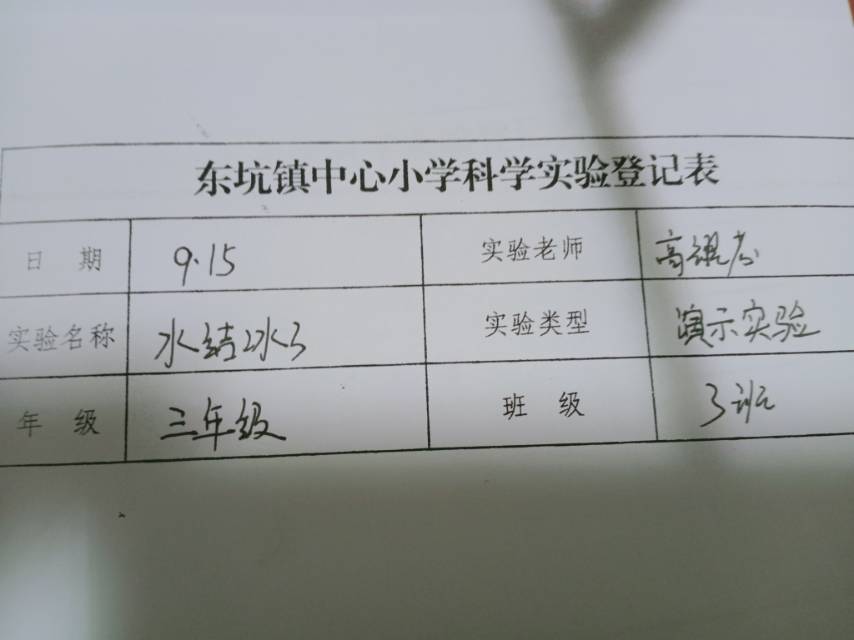 东坑镇中心小学科学实验登记表
日 期 9.15 实验老师 高
实验名称 水结冰了 实验类型 演示实验
年 级 三年级 班 级 3班